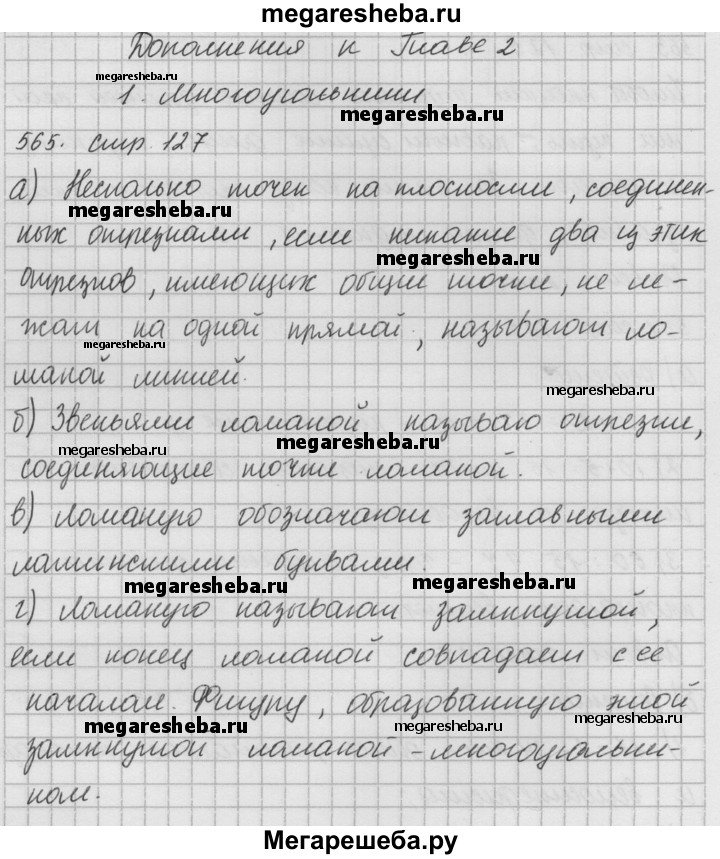 megaresheba.ru
Дополнения к Главе 2
megaresheba.ru
1. Многоугольники
megaresheba.ru
565. стр. 127
а) Несколько точек на плоскости, соединен-
megaresheba.ru
ных отрезками, если никакие два из этих
megaresheba.ru
отрезков, имеющих общие точки, не ле-
жат на одной прямой, называют ло-
megaresheba.ru
маной линией.
megaresheba.ru
б) Звеньями ломаной называю отрезки,
megaresheba.ru
megaresheba.ru
соединяющие точки ломаной.
в) Ломаную обозначают заглавными
латинскими буквами.
megaresheba.ru
megaresheba.ru
г) Ломаную называют замкнутой,
если конец ломаной совпадает с ее
началом. Фигуру, образованную этой
megaresheba.ru
megaresheba.ru
megaresheba.ru
замкнутой ломаной - многоугольни-
ком.
Мегарешеба.ру